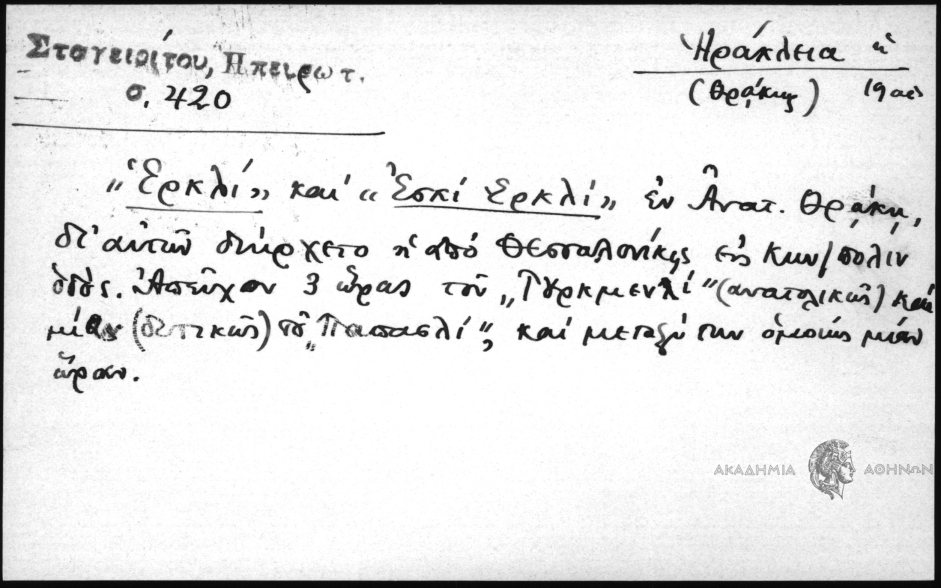 Σταγειρίτου, Ηπειρωτ.
σ. 420
Ἡράκλεια ἡ
(Θρᾴκης) 19 αἰ
„Ἐρκλί„ καί „Ἐσκί Ἐρκλί„ ἐν Ἀνατ. Θρᾴκῃ,
δι' αὐτῶν διήρχετο ἡ ἀπό Θεσσαλονίκης εἰς Κων/πολιν
ὁδός. Ἀπεῖχον 3 ὥρας τοῦ „Τυρκμενλί" (ἀνατολικῶς) καί
μίαν (δυτικῶς) τοῦ „Παπασλί", καί μεταξύ των ὁμοίως μίαν
ὥραν.
ΑΚΑΔΗΜΙΑ ΑΘΗΝΩΝ